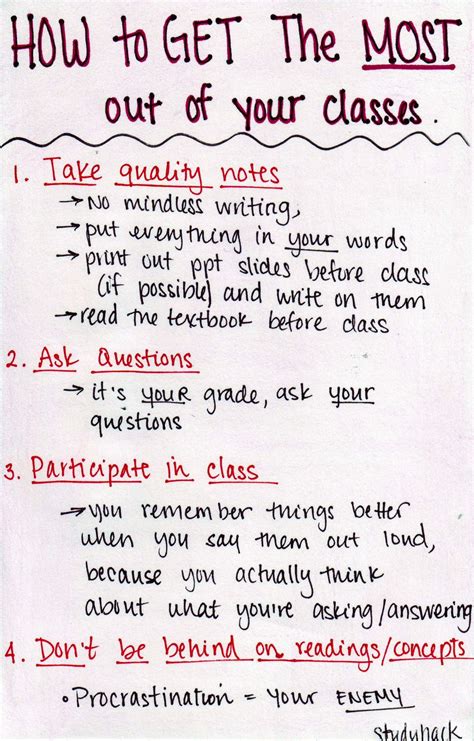 HOW to GET The MOST
out of your classes.
1. Take quality notes
→ No mindless writing,
→ put everything in your words
→ print out ppt slides before class
(if possible) and write on them
→ read the textbook before class
2. Ask Questions
→ it's YOUR grade, ask your
questions
3. Participate in class
→ you remember things better
when you say them out loud,
because you actually think
about what you're asking/answering
4. Don't be behind on readings/concepts
• Procrastination = your ENEMY
studyhack